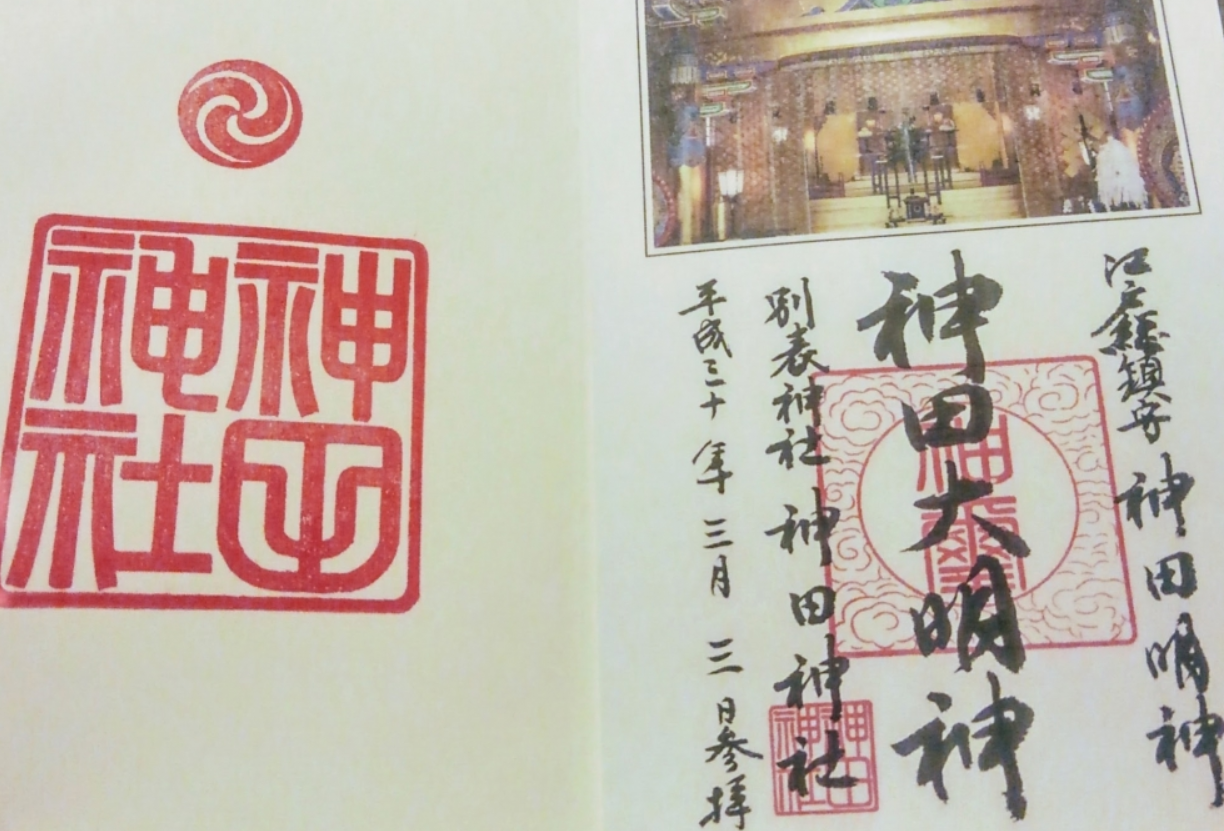 江戸総鎮守 神田明神
神田大明神
別表神社 神田神社
平成三十年 三月 三日参拝
神田
神社
神田
神社